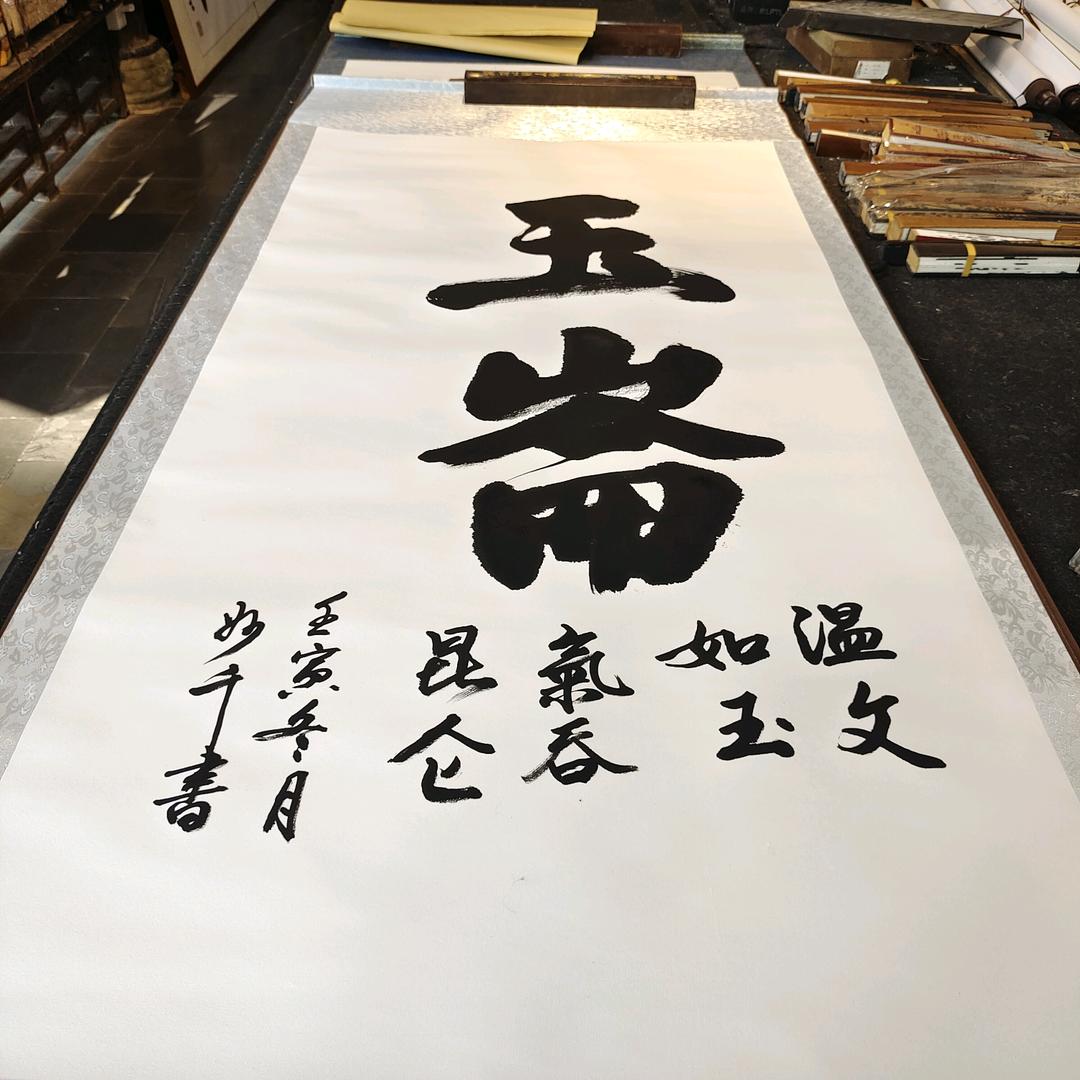 玉
崙
温文
如玉
氣吞
昆仑
壬寅冬月
妙千書